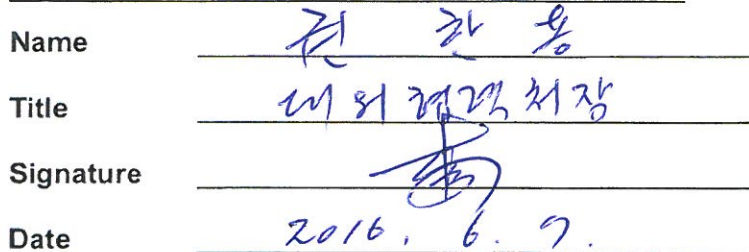 Name 권 찬 용
Title 대외협력처장
Signature
Date 2016. 6. 7.